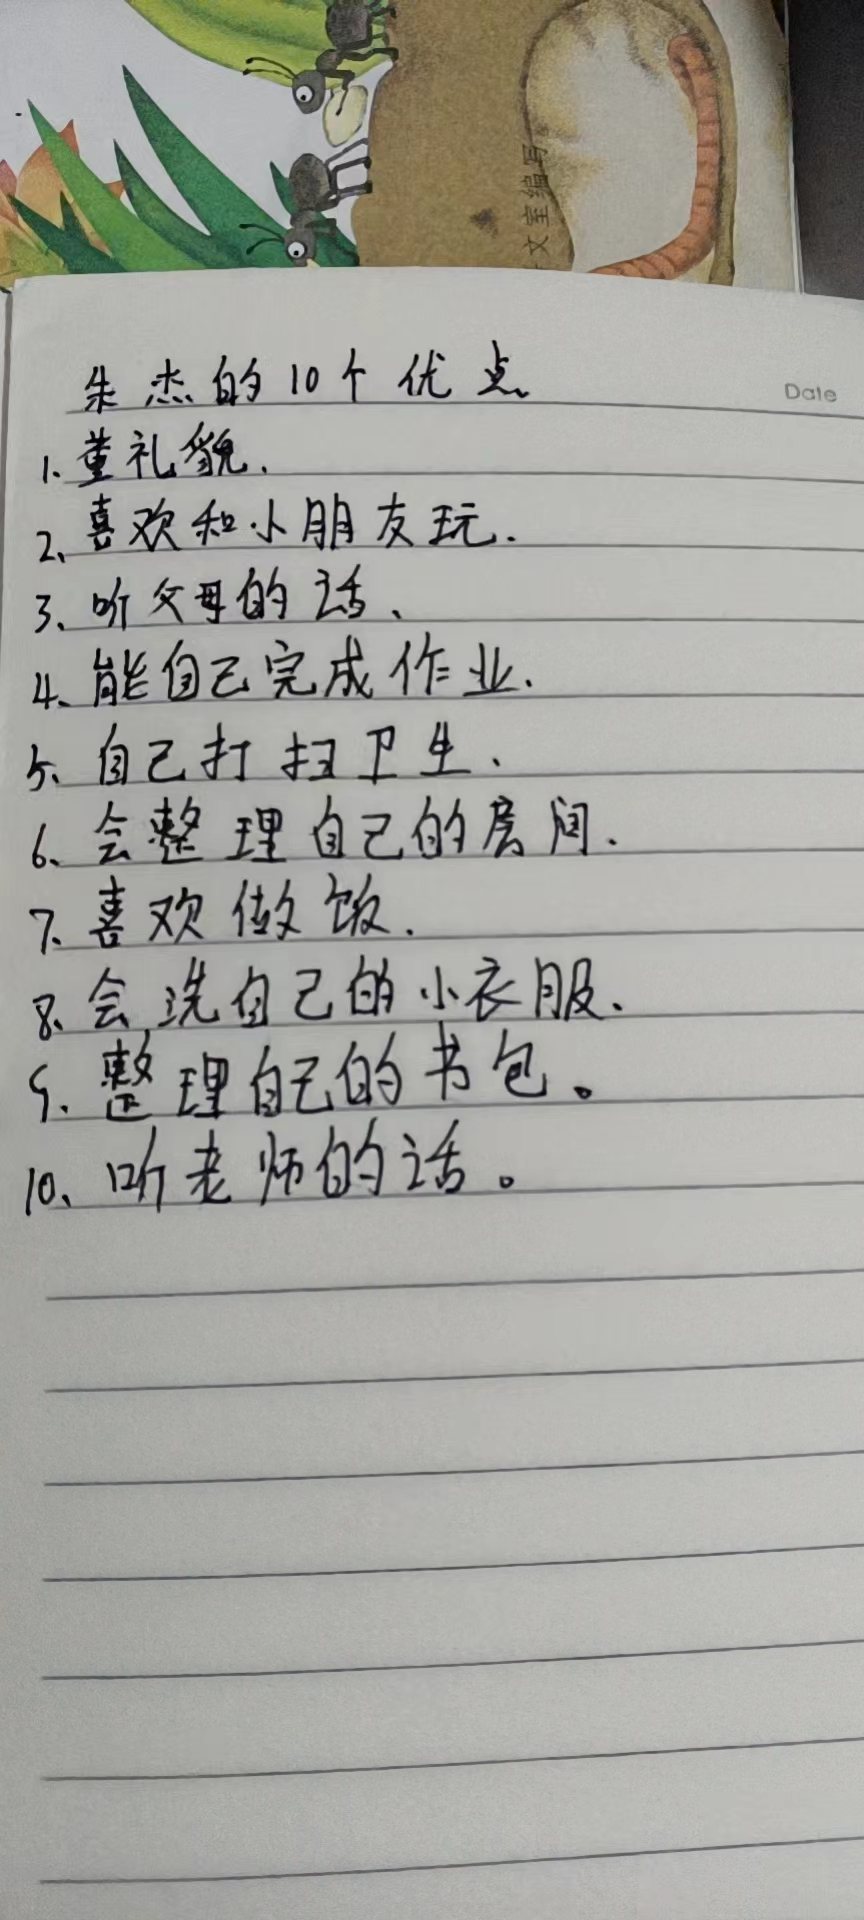 文室编写
朱杰的10个优点
Date
1、董礼貌.
2、喜欢和小朋友玩.
3、听父母的话、
4、能自己完成作业.
5、自己打扫卫生.
6、会整理自己的房间.
7、喜欢做饭.
8、会洗自己的小衣服.
9、整理自己的书包。
10、听老师的话。